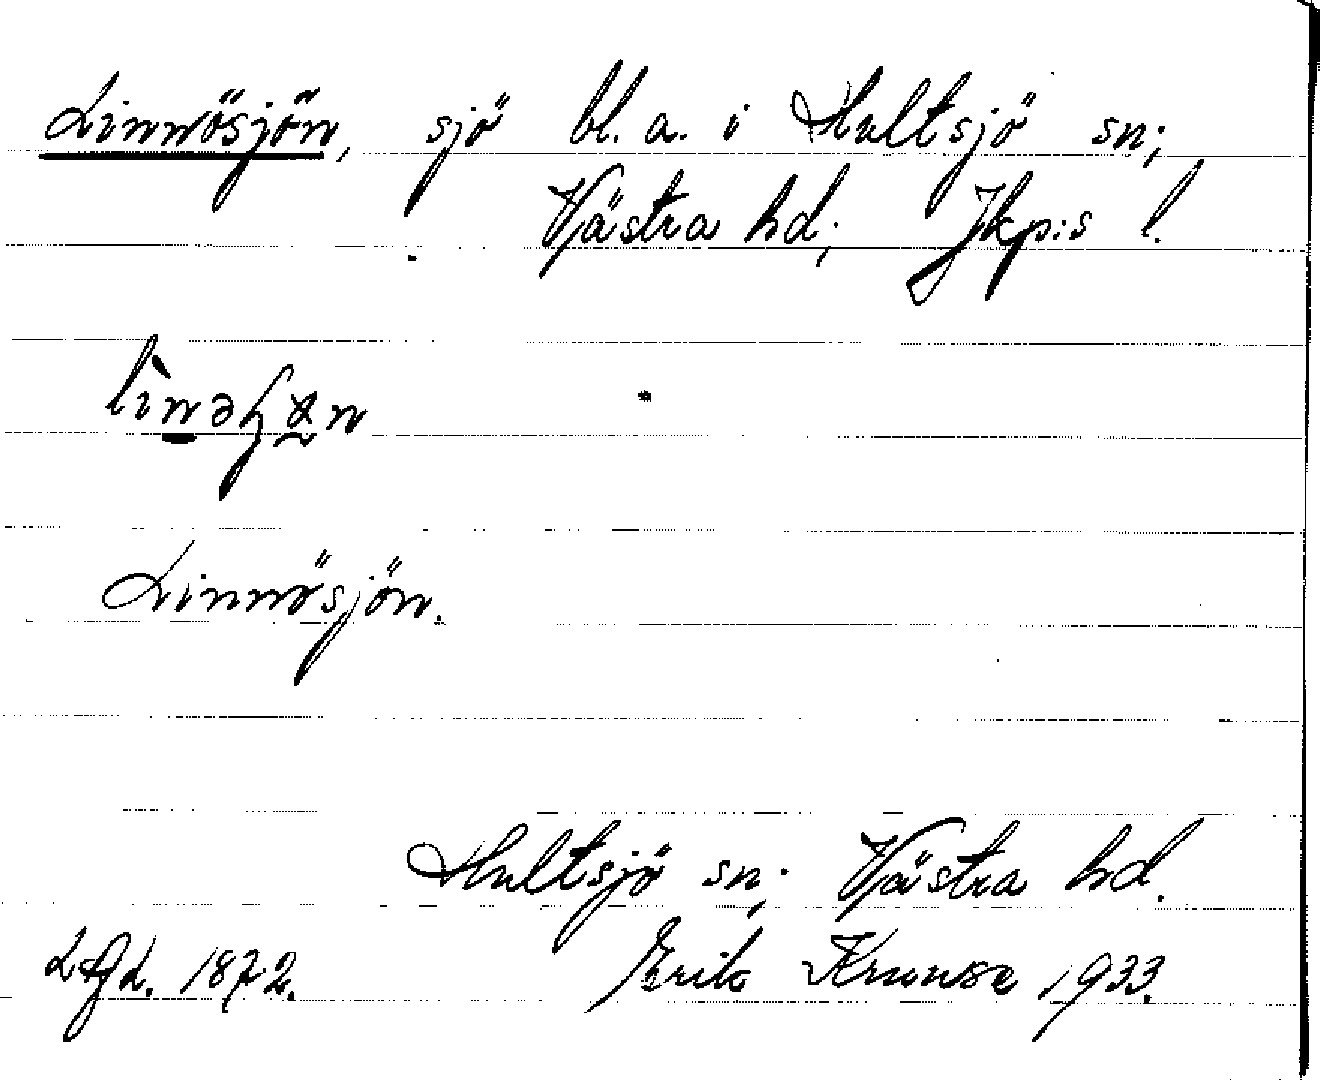 Linnösjön, sjö bl. a. i Hultsjö sn;
Västra hd; Jkp:s l.
Linnösjön.
Hultsjö sn; Västra hd.
1872. Erik Krunse 1933.